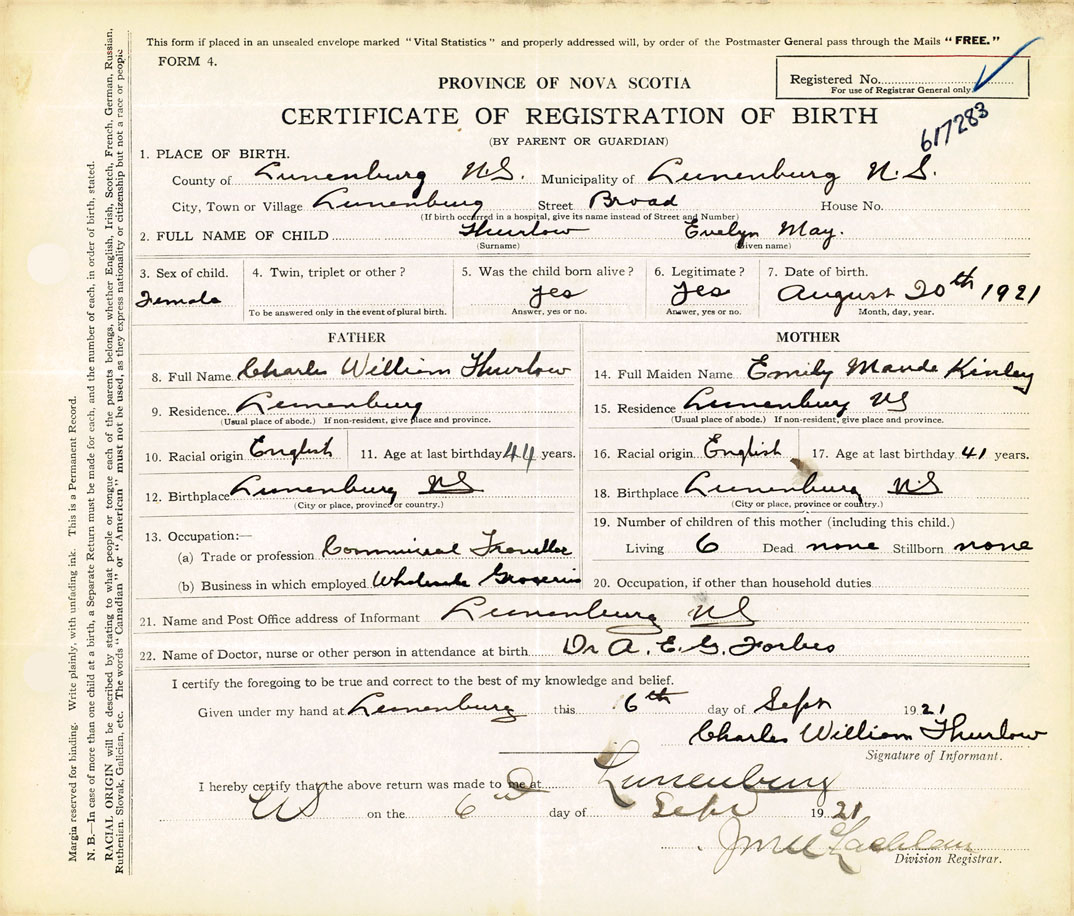 This form if placed in an unsealed envelope marked "Vital Statistics" and properly addressed will, by order of the Postmaster General pass through the Mails "FREE."
FORM 4.
Registered No.
For use of Registrar General only.
617283
PROVINCE OF NOVA SCOTIA
CERTIFICATE OF REGISTRATION OF BIRTH
(BY PARENT OR GUARDIAN)
1. PLACE OF BIRTH.
County of Lunenburg N.S. Municipality of Lunenburg N.S.
City, Town or Village Lunenburg Street Broad House No.
(If birth occurred in a hospital, give its name instead of Street and Number)
2. FULL NAME OF CHILD Thurlow Evelyn May.
(Surname) (Given name)
3. Sex of child. 4. Twin, triplet or other? 5. Was the child born alive? 6. Legitimate? 7. Date of birth.
Female yes Yes August 20th 1921
To be answered only in the event of plural birth. Answer, yes or no. Answer, yes or no. Month, day, year.
FATHER
8. Full Name Charles William Thurlow
9. Residence Lunenburg
(Usual place of abode.) If non-resident, give place and province.
10. Racial origin English 11. Age at last birthday 44 years.
12. Birthplace Lunenburg NS
(City or place, province or country.)
13. Occupation:—
(a) Trade or profession Commercial Traveller
(b) Business in which employed Wholesale Groceries
MOTHER
14. Full Maiden Name Emily Maude Kinley
15. Residence Lunenburg NS
(Usual place of abode.) If non-resident, give place and province.
16. Racial origin English 17. Age at last birthday 41 years.
18. Birthplace Lunenburg NS
(City or place, province or country.)
19. Number of children of this mother (including this child.)
Living 6 Dead none Stillborn none
20. Occupation, if other than household duties
21. Name and Post Office address of Informant Lunenburg NS
22. Name of Doctor, nurse or other person in attendance at birth Dr A. E. G. Forbes
I certify the foregoing to be true and correct to the best of my knowledge and belief.
Given under my hand at Lunenburg this 6th day of Sept 1921
Charles William Thurlow
Signature of Informant.
I hereby certify that the above return was made to me at Lunenburg
NS on the 6 day of Sept 1921
Division Registrar.
Margin reserved for binding. Write plainly, with unfading ink. This is a Permanent Record.
N. B.—In case of more than one child at a birth, a Separate Return must be made for each, and the number of each, in order of birth, stated.
RACIAL ORIGIN will be described by stating to what people or tongue each of the parents belongs, whether English, Irish, Scotch, French, German, Russian,
Ruthenian, Slovak, Galician, etc. The words "Canadian" or "American" must not be used, as they express nationality or citizenship but not a race or people